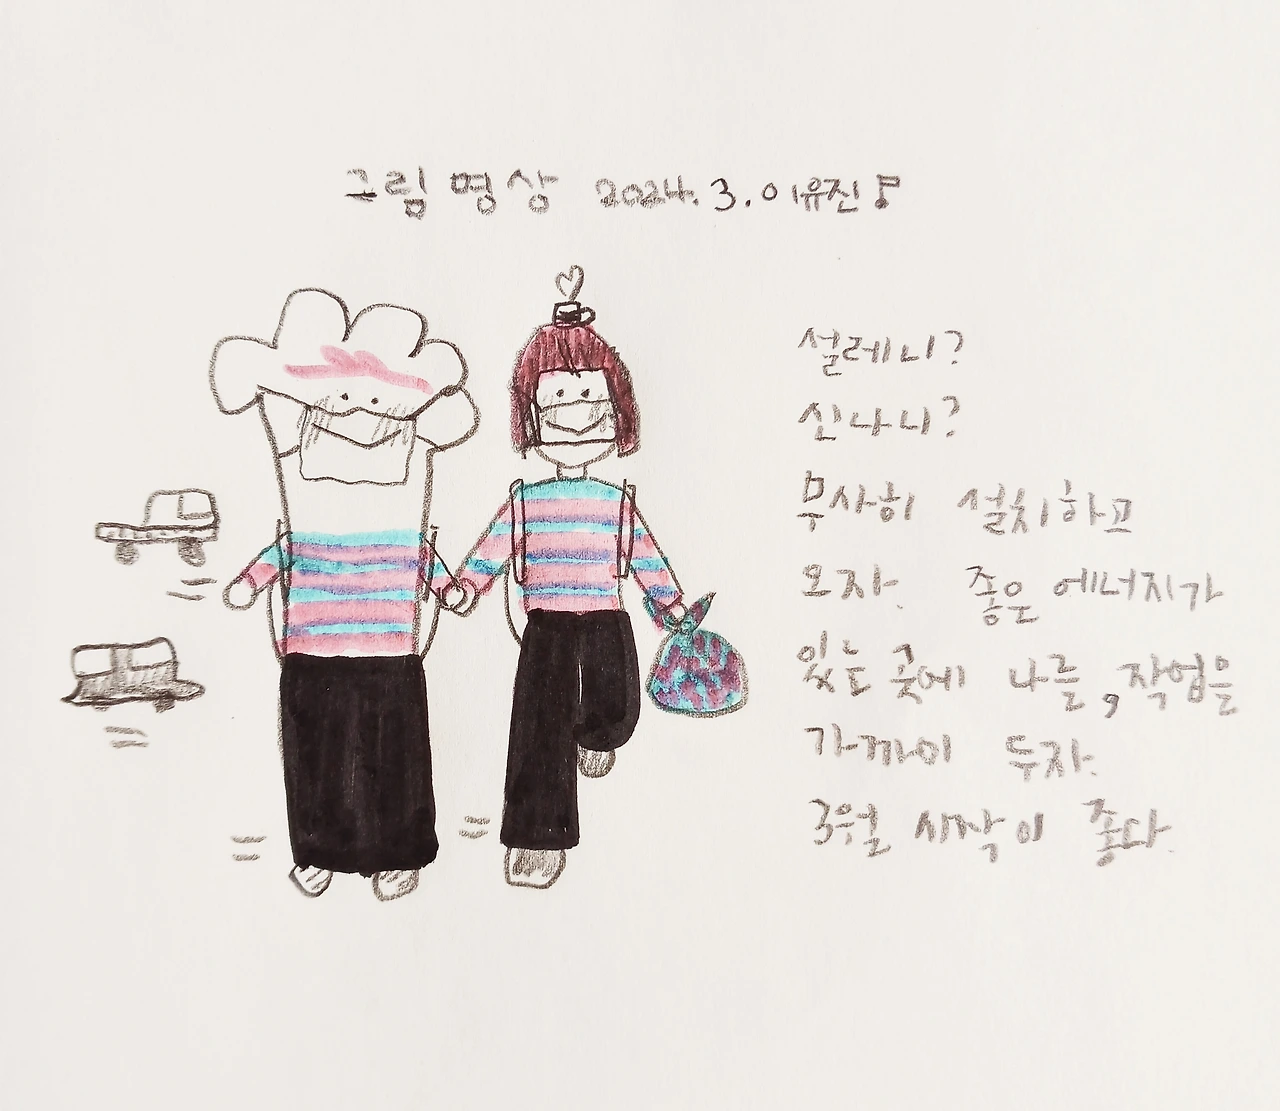 그림 명상 2024.3.이유진
설레니?
신나니?
무사히 설치하고
오자. 좋은 에너지가
있는 곳에 나를, 작업을
가까이 두자.
3월 시작이 좋다.